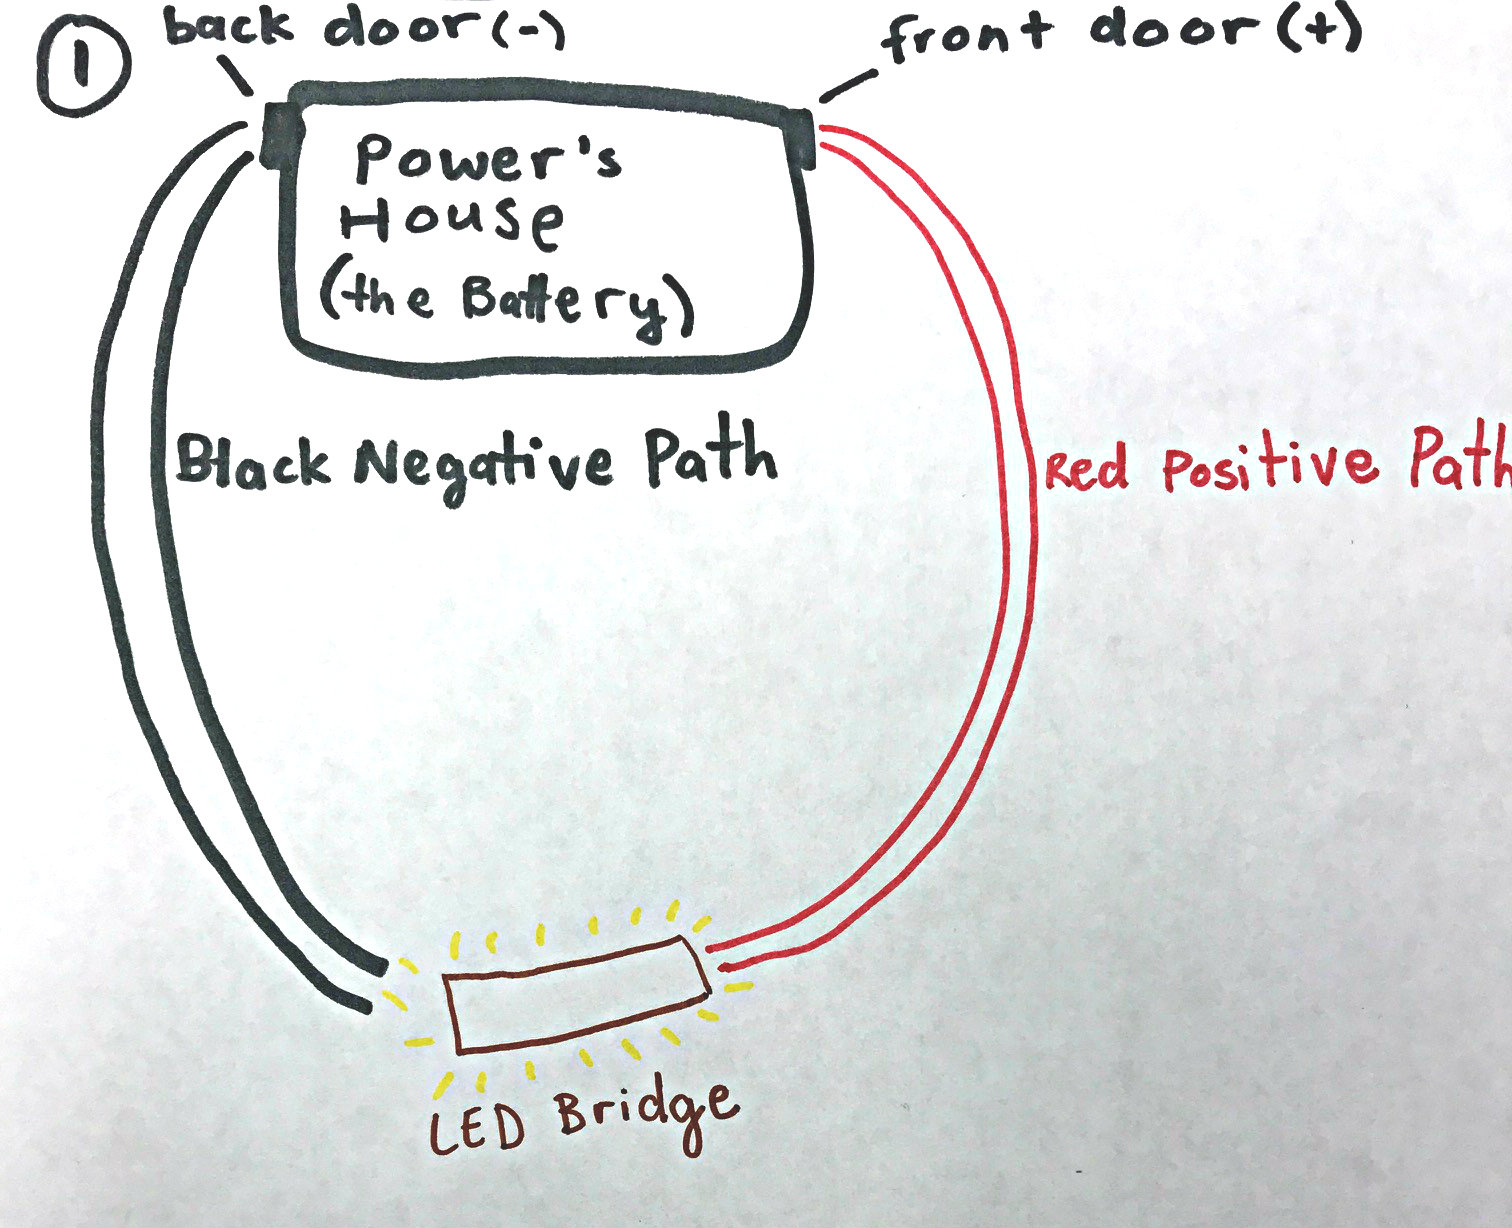 1
back door (-)
front door (+)
Power's
House
(the Battery)
Black Negative Path
Red Positive Path
LED Bridge